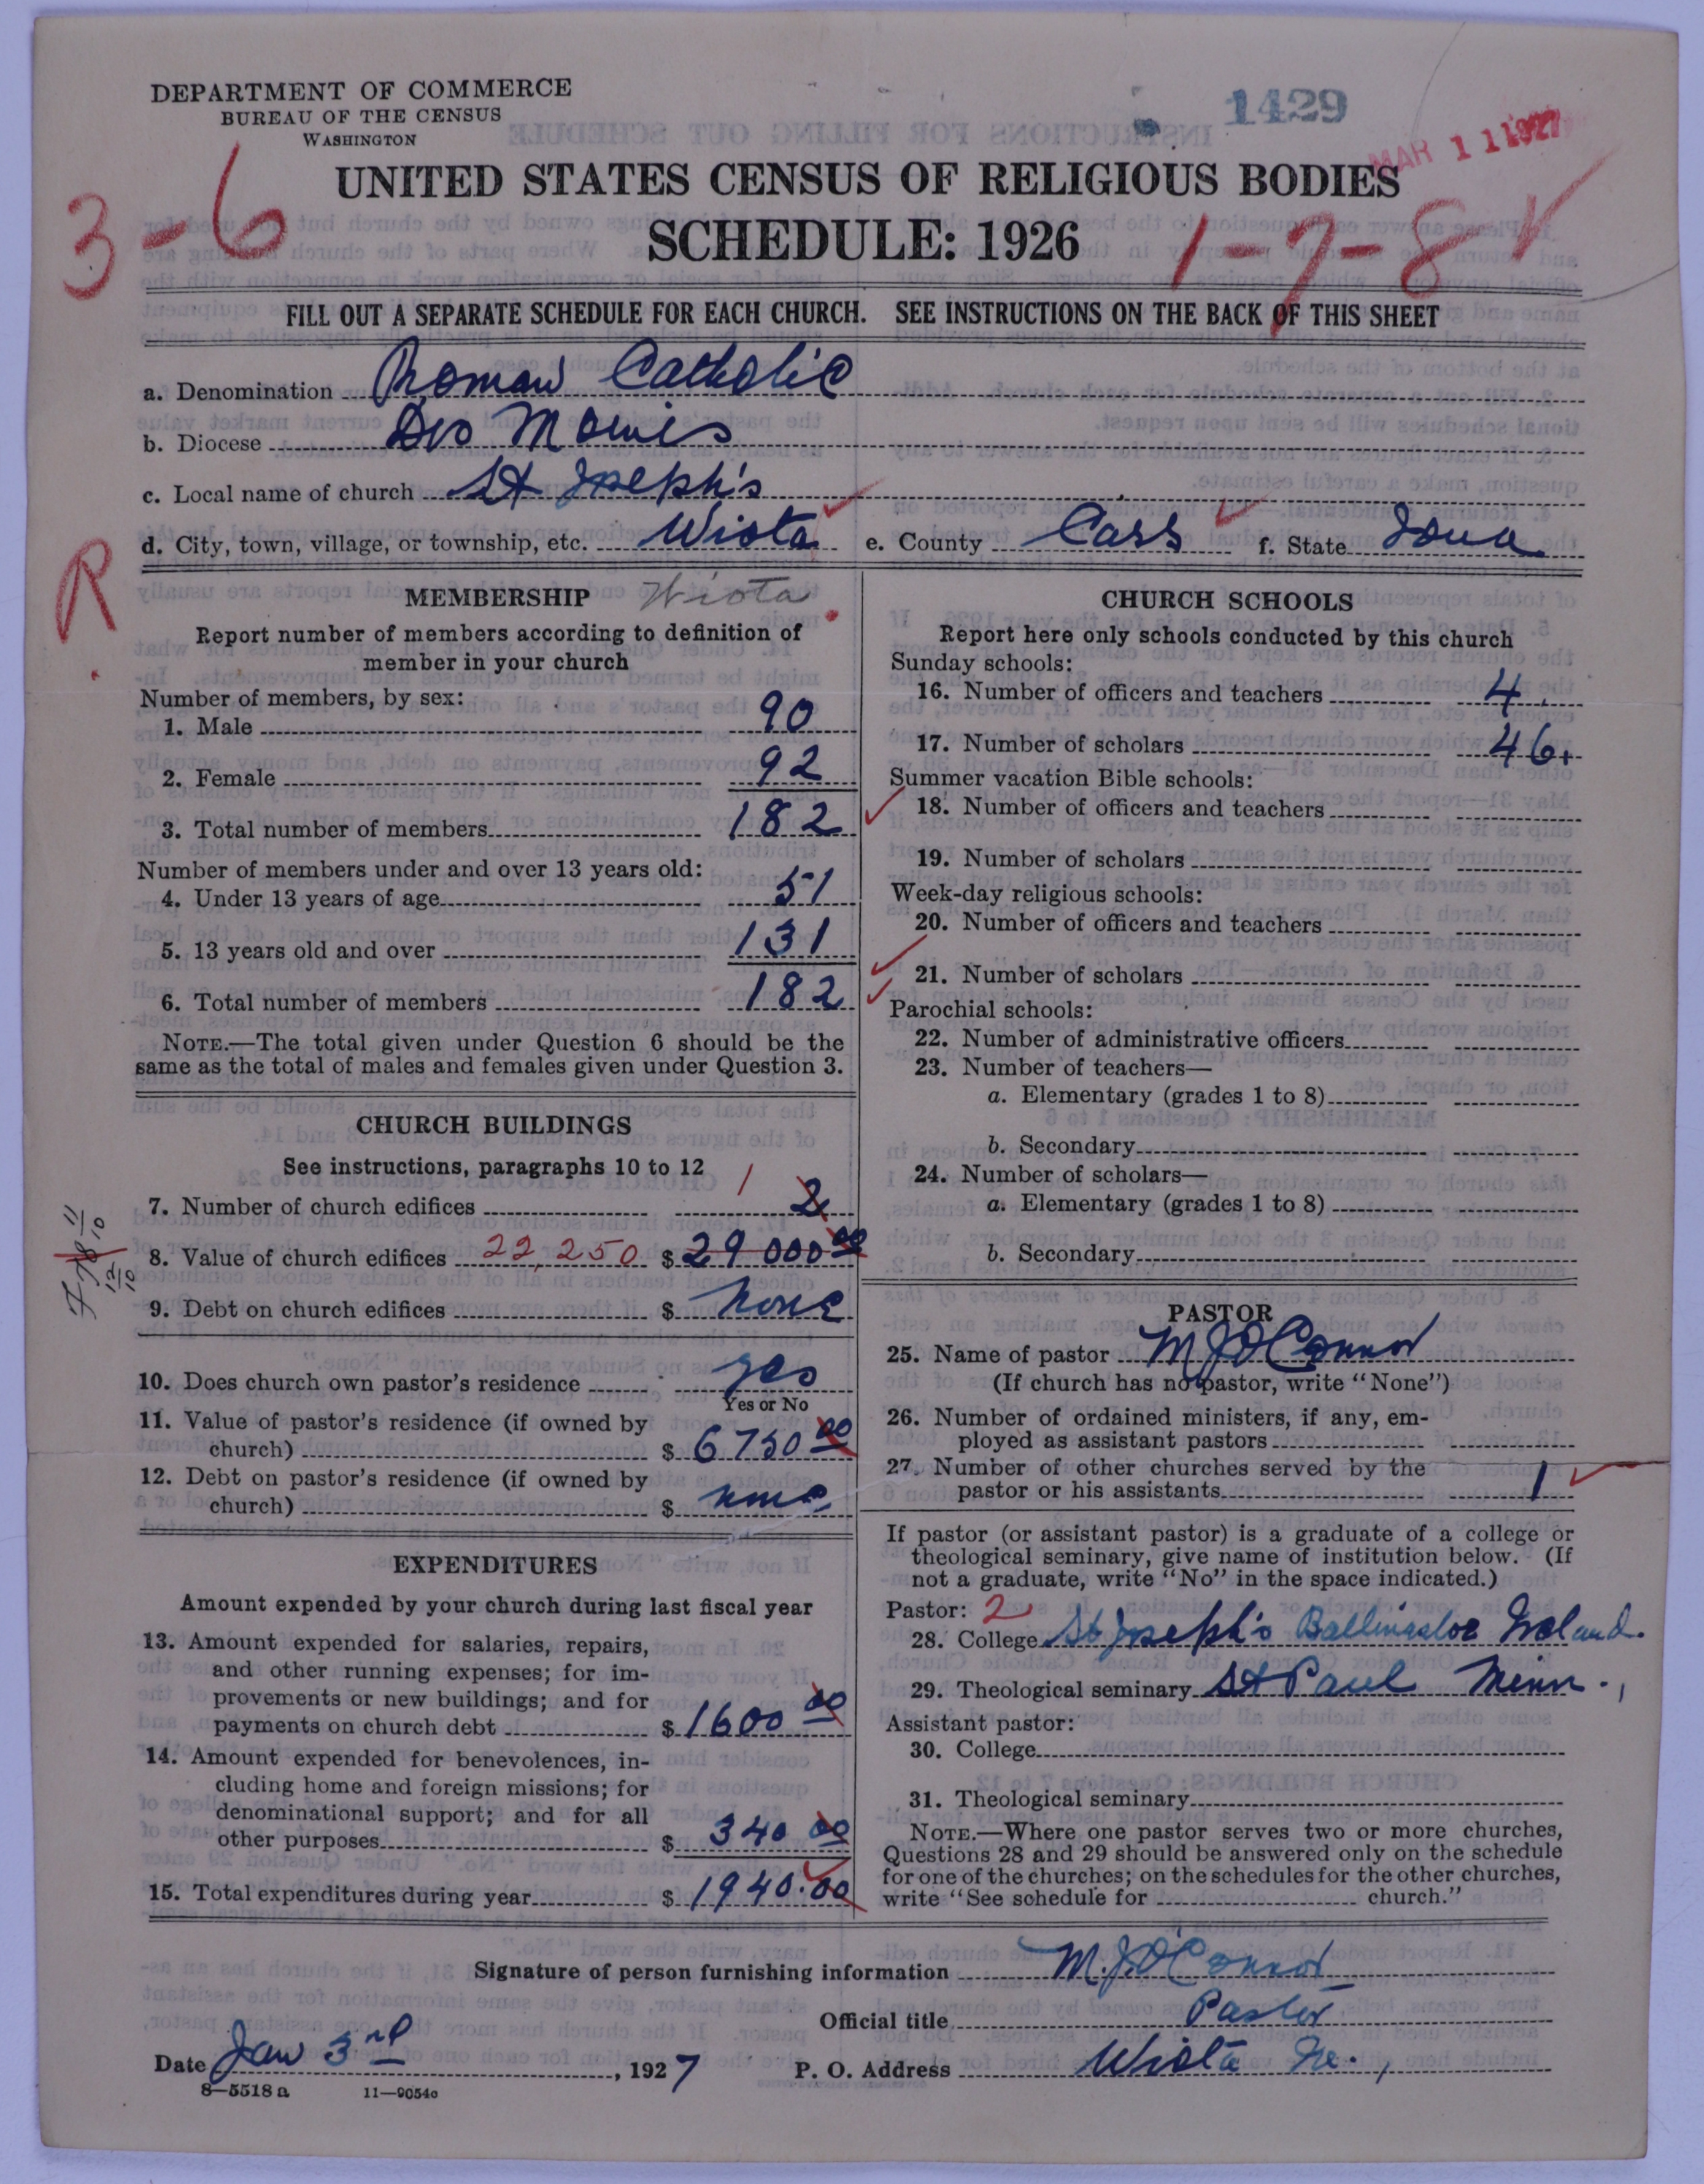 DEPARTMENT OF COMMERCE
BUREAU OF THE CENSUS
WASHINGTON
1429
MAR 11 1927
UNITED STATES CENSUS OF RELIGIOUS BODIES
SCHEDULE: 1926
3-6
1-7-8
FILL OUT A SEPARATE SCHEDULE FOR EACH CHURCH. SEE INSTRUCTIONS ON THE BACK OF THIS SHEET
a. Denomination Roman Catholic
b. Diocese Des Moines
c. Local name of church St Joseph's
d. City, town, village, or township, etc. Wiota e. County Cass f. State Iowa
R
MEMBERSHIP Wiota
Report number of members according to definition of
member in your church
Number of members, by sex:
1. Male 90
2. Female 92
3. Total number of members 182
Number of members under and over 13 years old:
4. Under 13 years of age 51
5. 13 years old and over 131
6. Total number of members 182
NOTE.—The total given under Question 6 should be the
same as the total of males and females given under Question 3.
CHURCH BUILDINGS
See instructions, paragraphs 10 to 12
7. Number of church edifices 1 2
8. Value of church edifices 22,250 $ 29000 00
9. Debt on church edifices $ None
10. Does church own pastor's residence yes
Yes or No
11. Value of pastor's residence (if owned by
church) $ 6750 00
12. Debt on pastor's residence (if owned by
church) $ none
EXPENDITURES
Amount expended by your church during last fiscal year
13. Amount expended for salaries, repairs,
and other running expenses; for im-
provements or new buildings; and for
payments on church debt $ 1600 00
14. Amount expended for benevolences, in-
cluding home and foreign missions; for
denominational support; and for all
other purposes $ 340 00
15. Total expenditures during year $ 1940.00
CHURCH SCHOOLS
Report here only schools conducted by this church
Sunday schools:
16. Number of officers and teachers 4
17. Number of scholars 46
Summer vacation Bible schools:
18. Number of officers and teachers
19. Number of scholars
Week-day religious schools:
20. Number of officers and teachers
21. Number of scholars
Parochial schools:
22. Number of administrative officers
23. Number of teachers—
a. Elementary (grades 1 to 8)
b. Secondary
24. Number of scholars—
a. Elementary (grades 1 to 8)
b. Secondary
PASTOR
25. Name of pastor M J O'Connor
(If church has no pastor, write "None")
26. Number of ordained ministers, if any, em-
ployed as assistant pastors
27. Number of other churches served by the
pastor or his assistants 1
If pastor (or assistant pastor) is a graduate of a college or
theological seminary, give name of institution below. (If
not a graduate, write "No" in the space indicated.)
Pastor: 2
28. College St Joseph's Ballinasloe Ireland.
29. Theological seminary St Paul Minn.,
Assistant pastor:
30. College
31. Theological seminary
NOTE.—Where one pastor serves two or more churches,
Questions 28 and 29 should be answered only on the schedule
for one of the churches; on the schedules for the other churches,
write "See schedule for church."
Signature of person furnishing information M. J. O'Connor
Official title Pastor
Date Jan 3rd, 1927 P. O. Address Wiota
8—5518a 11—9054c